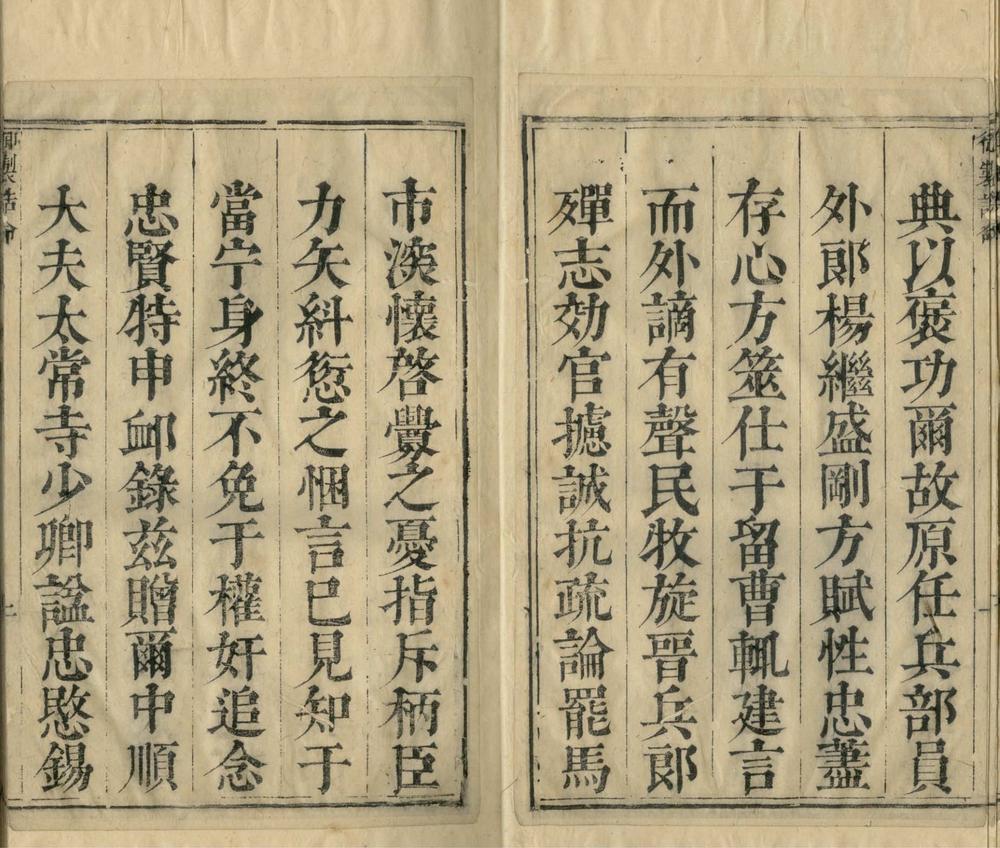 典以褒功爾故原任兵部員
外郎楊繼盛剛方賦性忠藎
存心方筮仕于留曹輒建言
而外謫有聲民牧旋晉兵郎
殫志効官攄誠抗疏論罷馬
市深懷啓釁之憂指斥柄臣
力矢糾愆之悃言已見知于
當宁身終不免于權奸追念
忠賢特申䘏錄茲贈爾中順
大夫太常寺少卿諡忠愍錫